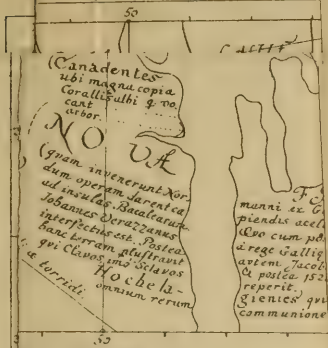 50
(Canadentes
ubi magna copia
Corallis albi q vo
cant
arbor.
NO
VÆ
(quam invenerunt Nor
dum operam darent ea
ad insulas Bacalearum
Johannes Verazzanus
interfectus est. Postea
hanc terram plustravit
qui Clavos imo Sclavos
Hochela-
omnium rerum
a torridi.
50
manni ex G
piendis acel
Qvo cum po
a rege Gallię
avtem Jacob
& postea 152
reperit.
gientes qvi
communione